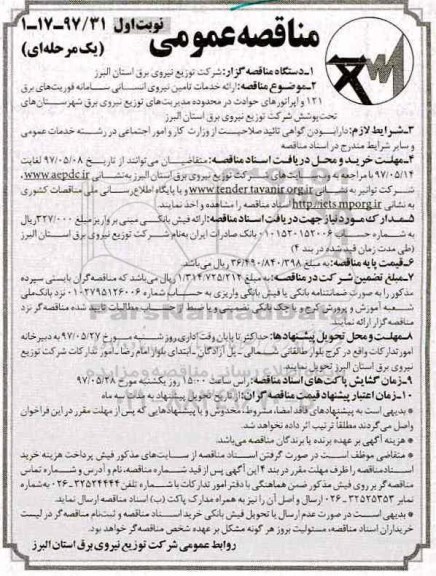 مناقصه عمومی
نوبت اول ۹۷/۳۱-۱۷-۱
(یک مرحله ای)
۱-دستگاه مناقصه گزار:شرکت توزیع نیروی برق استان البرز
۲-موضوع مناقصه:ارائه خدمات تامین نیروی انسانی سامانه فوریت‌های برق
۱۲۱ و اپراتورهای حوادث در محدوده مدیریت‌های توزیع نیروی برق شهرستان‌های
تحت‌پوشش شرکت توزیع نیروی برق استان البرز
۳-شرایط لازم:دارا بودن گواهی تائید صلاحیت از وزارت کار و امور اجتماعی در رشته خدمات عمومی
و سایر شرایط مندرج در اسناد مناقصه
۴-مهلت خرید و محل دریافت اسناد مناقصه:متقاضیان می توانند از تاریخ ۹۷/۰۵/۰۸ لغایت
۹۷/۰۵/۱۴ با مراجعه به وب سایت های شرکت توزیع نیروی برق استان البرز به‌نشانی www.aepdc.ir،
شرکت توانیر به نشانی www.tender.tavanir.org.ir و یا پایگاه اطلاع رسانی ملی مناقصات کشوری
به نشانی http://iets.mporg.ir اسناد مناقصه را مشاهده و اخذ نمایند.
۵-مدارک مورد نیاز جهت دریافت اسناد مناقصه:ارائه فیش بانکی مبنی بر واریز مبلغ ۳۲۷/۰۰۰ریال
به شماره حساب ۰۱۰۱۵۲۰۱۵۲۰۰۶ بانک صادرات ایران به‌نام شرکت توزیع نیروی برق استان البرز
(طی مدت زمان قید شده در بند ۴)
۶-قیمت پایه مناقصه:به مبلغ ۳۶/۴۹۰/۸۴۰/۳۹۸ ریال می‌باشد.
۷-مبلغ تضمین شرکت در مناقصه:به مبلغ ۱/۳۱۴/۷۲۵/۲۱۴ ریال می‌باشد که مناقصه‌گران بایستی سپرده
مذکور را به صورت ضمانتنامه بانکی یا فیش بانکی واریزی به حساب شماره ۰۱۰۲۷۹۵۱۲۶۰۰۶ نزد بانک‌ملی
شعبه آموزش و پرورش کرج و یا چک بانکی تضمینی و یا ضبط از محل مطالبات تایید شده مناقصه‌گر نزد
مناقصه گزار ارائه نمایند.
۸-مهلت و محل تحویل پیشنهادها: حداکثر تا پایان وقت اداری روز شنبه مورخ ۹۷/۰۵/۲۷ به دبیرخانه
امور تدارکات واقع در کرج بلوار طالقانی شمالی - پل آزادگان - ابتدای بلوار امام رضا - امور تدارکات شرکت توزیع
نیروی برق استان البرز تحویل نمایند.
۹-زمان گشایش پاکت‌های اسناد مناقصه: راس ساعت ۱۵:۰۰ روز یکشنبه مورخ ۹۷/۰۵/۲۸
۱۰-زمان اعتبار پیشنهاد قیمت مناقصه گران: از تاریخ تحویل پیشنهاد به مدت سه ماه
* بدیهی است به پیشنهادهای فاقد امضا، مشروط، مخدوش و یا پیشنهادهایی که پس از مهلت مقرر در این فراخوان
واصل می‌گردند مطلقاً ترتیب اثر داده نخواهد شد.
* هزینه آگهی بر عهده برنده یا برندگان مناقصه می‌باشد.
* متقاضی موظف است در صورت گرفتن اسناد مناقصه از سایت‌های مذکور فیش پرداخت هزینه خرید
اسناد مناقصه را ظرف مهلت مقرر در بند ۴ این آگهی پس از قید شماره مناقصه، نام و آدرس و شماره تماس
مناقصه گر بر روی فیش مذکور ضمن هماهنگی با دفتر امور تدارکات با شماره تلفن ۳۲۵۲۴۴۴۴-۰۲۶ به‌شماره
نمابر ۳۲۵۲۵۳۵۳-۰۲۶ ارسال و اصل آن را نیز به همراه مدارک پاکت (ب) اسناد مناقصه ارسال نماید.
* بدیهی است در صورت عدم ارسال یا تحویل فیش بانکی خرید اسناد مناقصه و ثبت‌نام مناقصه‌گر در لیست
خریداران اسناد مناقصه، مسئولیت بروز هر گونه مشکل بر عهده شخص مناقصه‌گر خواهد بود.
روابط عمومی شرکت توزیع نیروی برق استان البرز